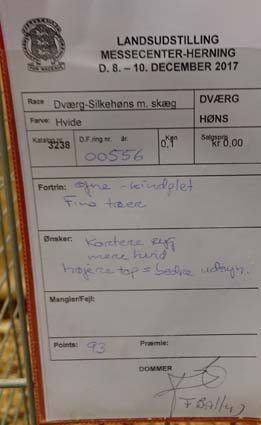 LANDSUDSTILLING
MESSECENTER-HERNING
D. 8. – 10. DECEMBER 2017
Race Dværg-Silkehøns m. skæg
DVÆRG
Farve: Hvide
HØNS
Katalog nr. D.F.ring nr. år. Køn Salgspris
3238 00556 0,1 kr 0,00
Fortrin: øjne - kindplet
Fine tæer
Ønsker: Kortere ryg
mere hvid
højere top = bedre udsyn.
Mangler/Fejl:
Points: 93 Præmie:
DOMMER